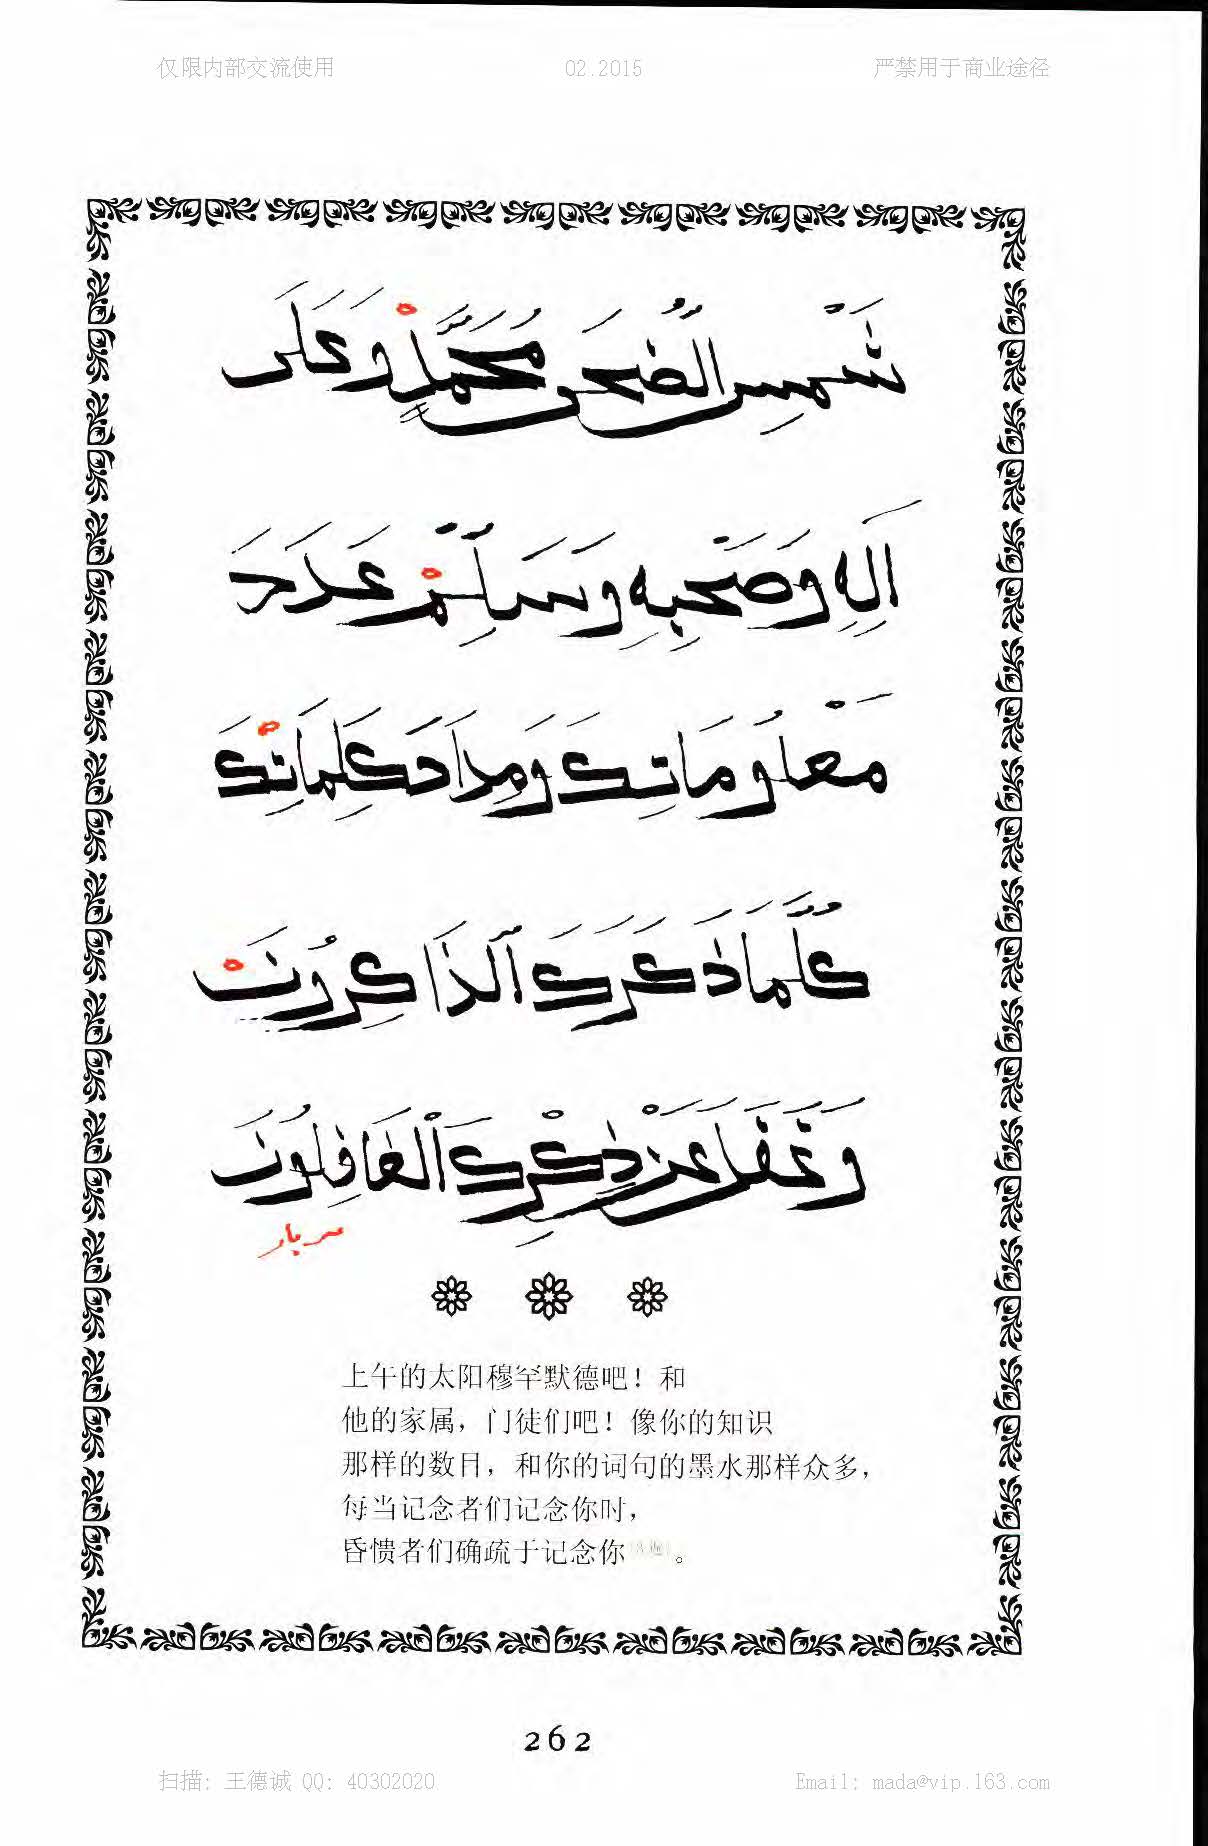 仅限内部交流使用 02.2015 严禁用于商业途径
شَمْسِ الضُّحَى مُحَمَّدٍ وَعَلَى
اَلِهِ وَصَحْبِهِ وَسَلِّمْ عَدَدَ
مَعْلُومَاتِكَ وَمِدَادَ كَلِمَاتِكَ
كُلَّمَا ذَكَرَكَ الذَّاكِرُونَ
وَغَفَلَ عَنْ ذِكْرِكَ الْغَافِلُونَ
سه بار
上午的太阳穆罕默德吧！和
他的家属，门徒们吧！像你的知识
那样的数目，和你的词句的墨水那样众多，
每当记念者们记念你时，
昏愦者们确疏于记念你。
262
扫描: 王德诚 QQ: 40302020 Email: mada@vip.163.com